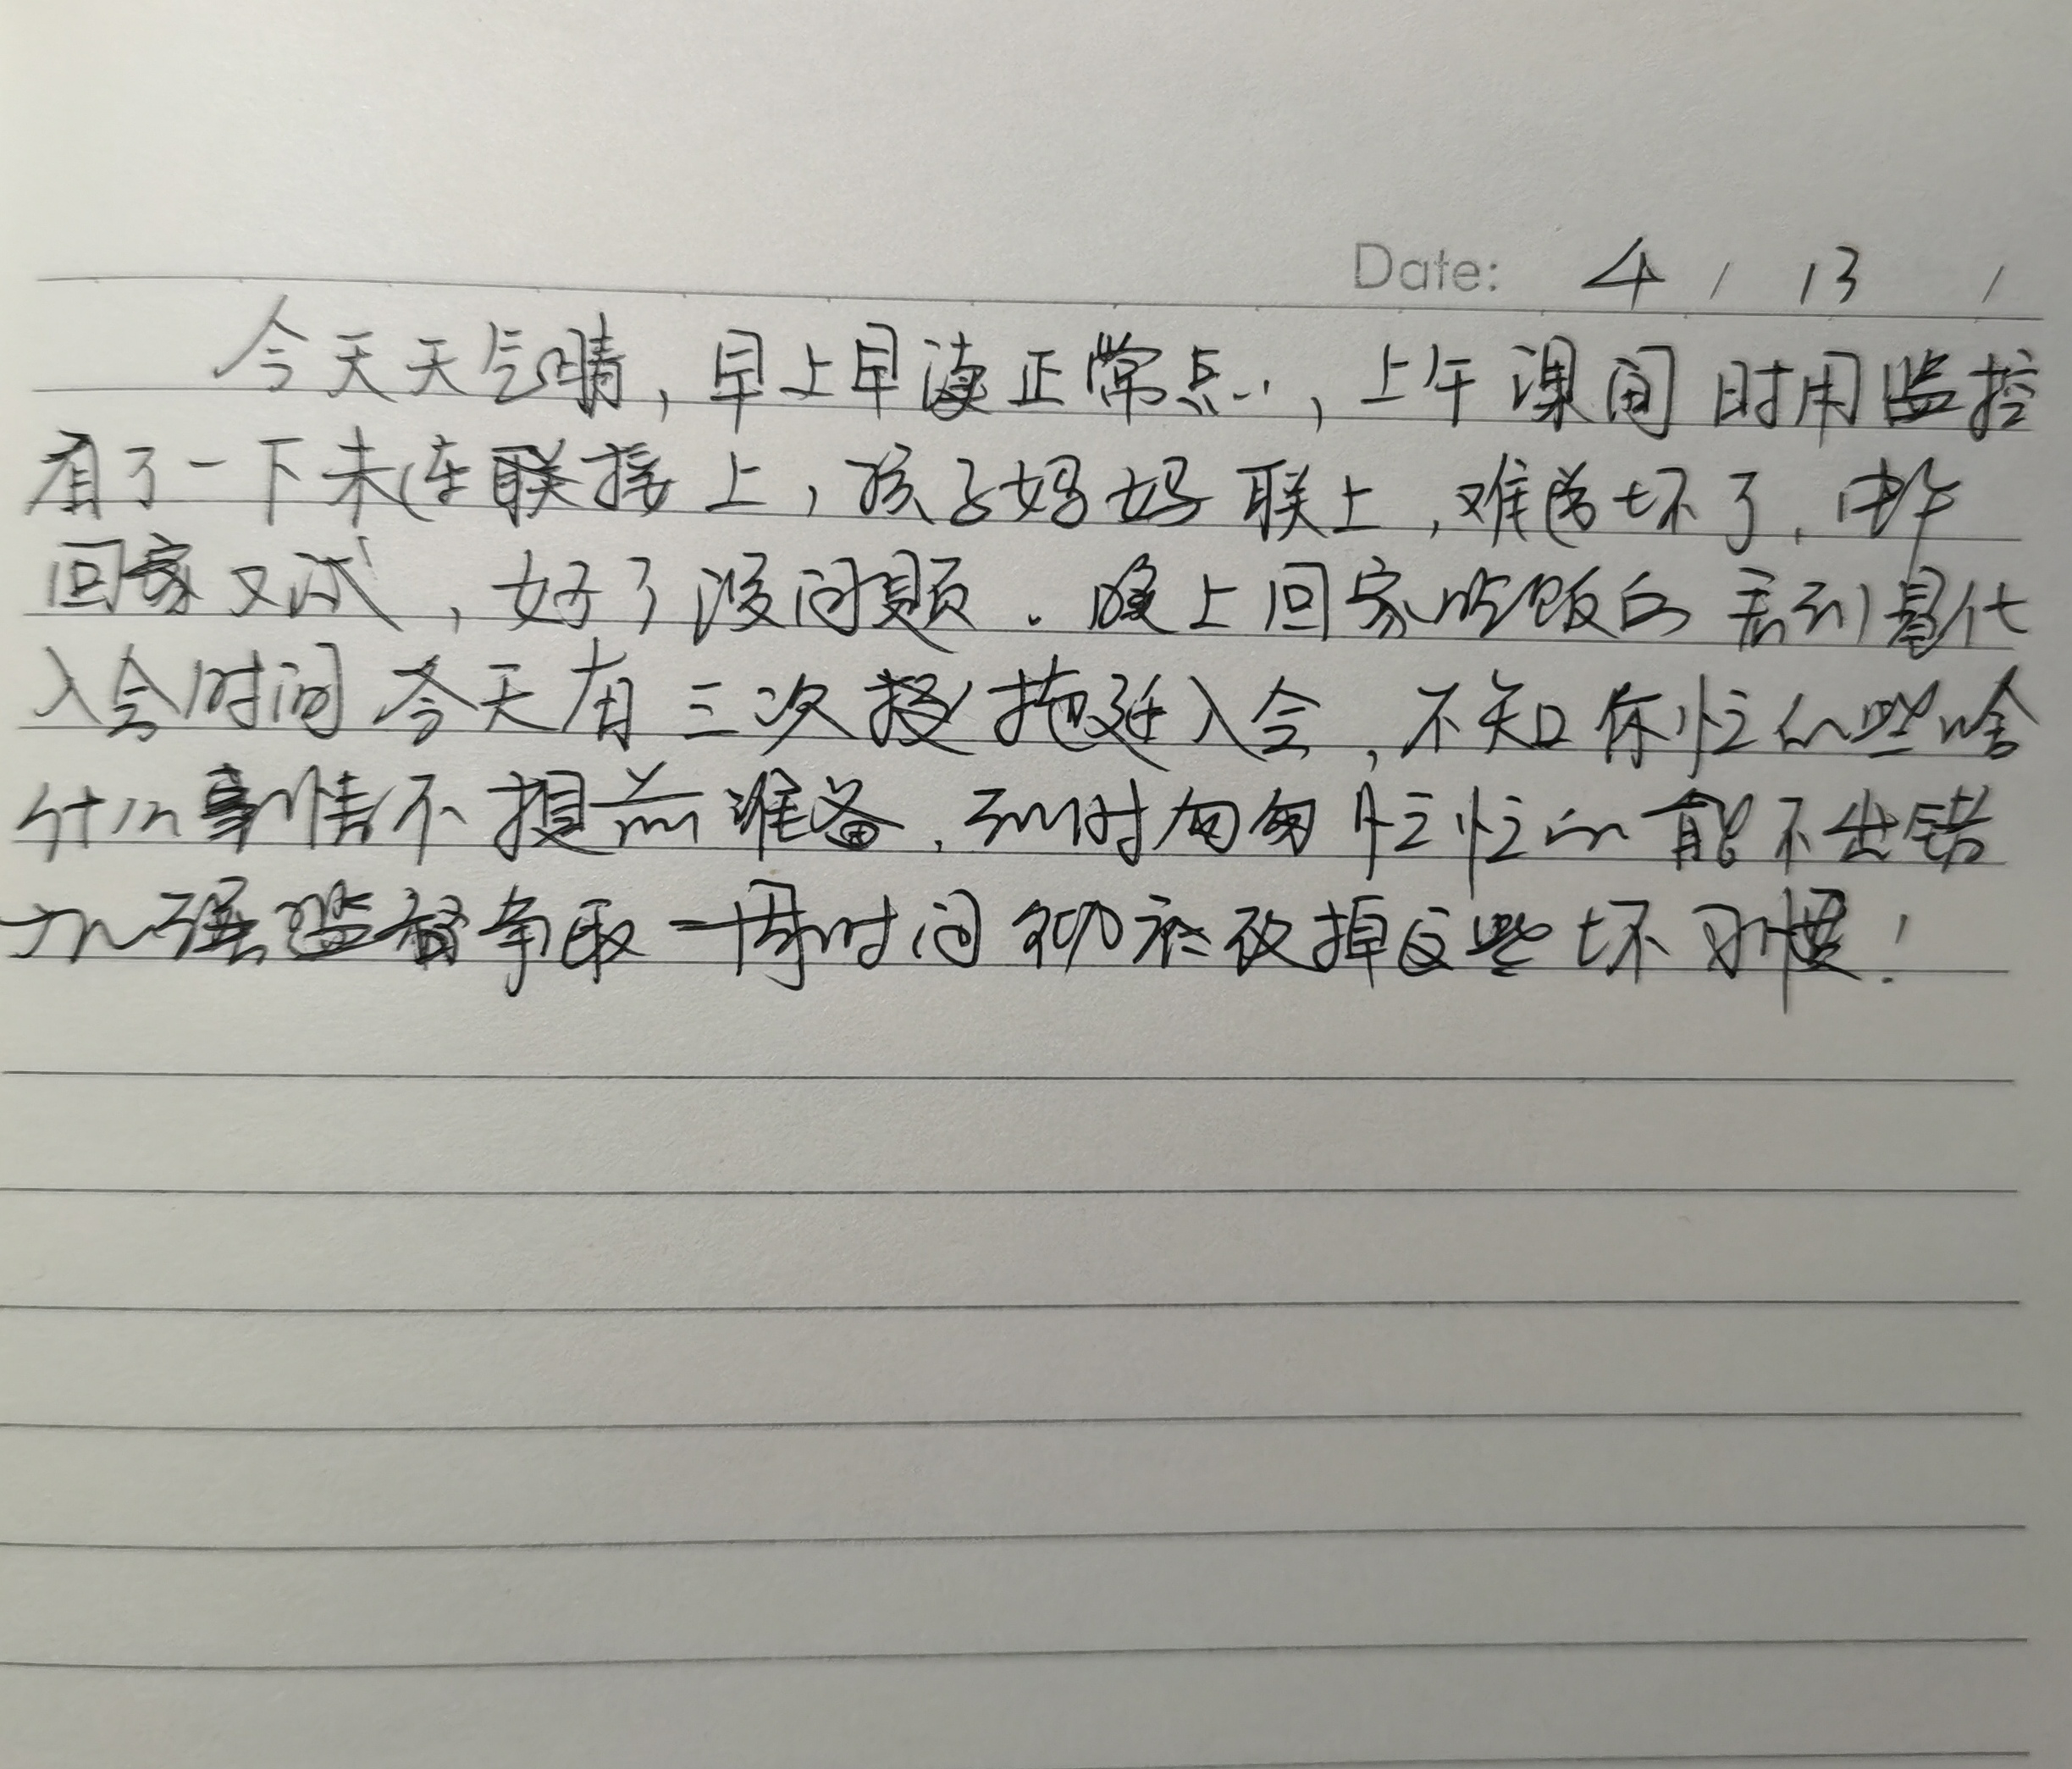 Date: 4 / 13 /
今天天气晴，早上早读正常点…，上午课间时用监控
看了一下未连联接上，孩子妈妈联上，难道坏了，中午
回家又试，好了没问题．晚上回家吃饭的 看到
入会时间今天有三次 拖延入会，不知你忙的些啥
什么事情不提前准备．到时匆匆忙忙的能不出错
加强监督争取一周时间 改掉这些坏习惯！